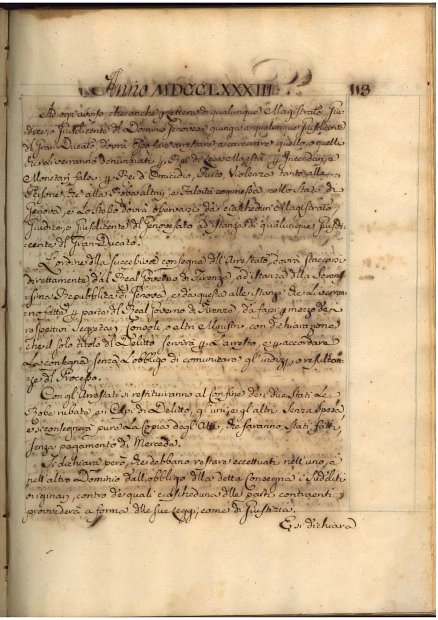 Anno MDCCLXXXIII 113
che anche lettera di qualunque Magistrato, Giu-
dice, o Giusdicente del Dominio Genovese giunga a qualunque Giusdicente
del Gran Ducato dovrà far arrestare, e carcerare quello, o quelli
che li verranno denunziati Rei di Lesa Maestà, Incendiarj,
Monetarj falsi, Rei di Omicidio, Furto, Violenze tanto alle
Persone, che alla Roba altrui, e Falsità commesse nello Stato di
Genova, e lo stesso dovrà osservarsi da ciaschedun Magistrato
Giudice, o Giusdicente del Genovesato ad istanza di qualunque Giusdi-
cente del Gran Ducato.
L'ordine della succe consegna dell'Arrestato, dovrà staccarsi
direttamente dal Real Governo di Firenze, ad istanza della Serenis-
sima Repubblica di Genova, e da questa alle istanze che le saran-
no fatte parte del Real Governo di Firenze, da farsi mezzo de
respettivi Segretarj, Consoli, o altri Ministri, con dichiarazione
che il solo titolo del Delitto servirà L'arresto, e accordare
la consegna senza l'obbligo di comunicare gl'indizj, o resultan-
ze del Processo.
Con gli Arrestati si restituiranno al Confine dei due Stati le
Robe rubate, i Corpi di Delitto, gl'uni, e gl'altri senza spesa,
e si consegnerà pure la Copia degli Atti, che saranno stati fatti,
senza pagamento di Mercede.
Si dichiara però, che debbano restare eccettuati nell'uno, e
nell'altro Dominio dall'obbligo della detta Consegna i Sudditi
originarj, contro de quali ciascheduna delle parti contraenti
provvederà a forma delle sue Leggi, come di Giustizia.
E si dichiara